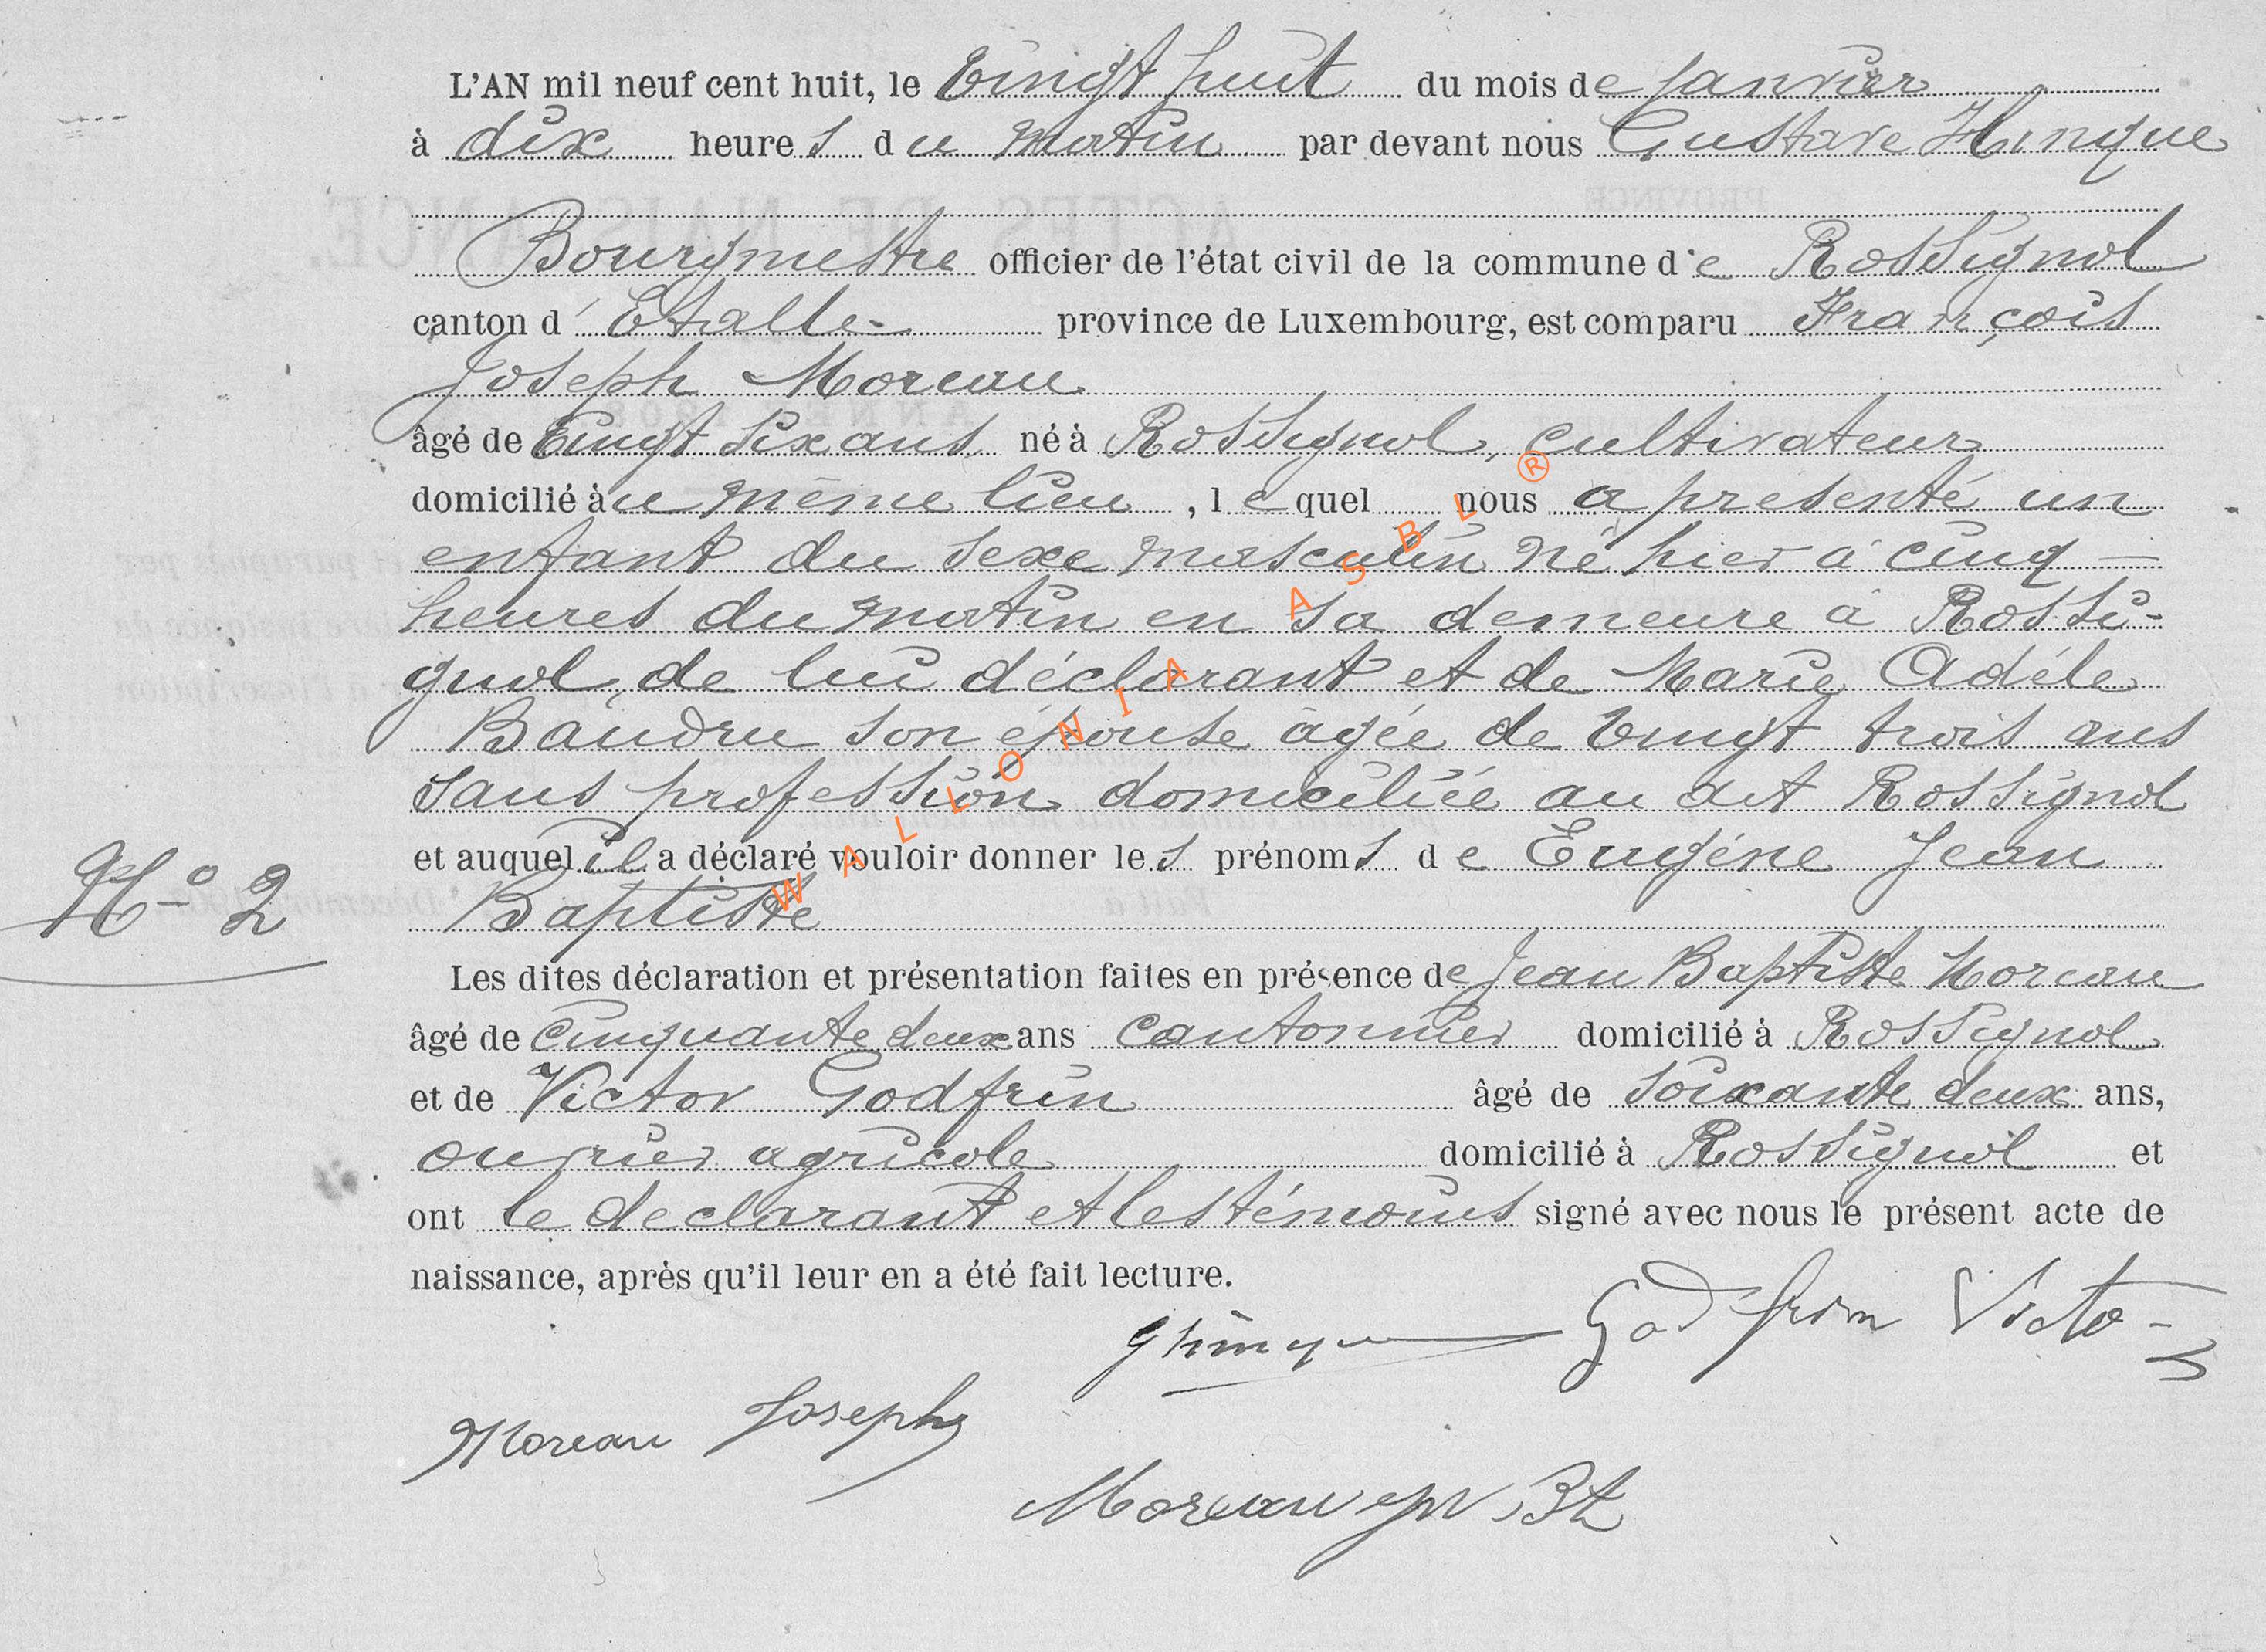 L'AN mil neuf cent huit, le Vingt huit du mois de janvier
à dix heures du matin par devant nous Gustave Hinque
Bourgmestre officier de l'état civil de la commune d'e Rossignol
canton d' Etalle- province de Luxembourg, est comparu François
Joseph Moreau
âgé de Vingt six ans né à Rossignol, cultivateur
domicilié àu même lieu , lequel nous a presenté un
enfant du sexe masculin né hier à cinq
heures du matin en sa demeure à Rossi-
gnol, de lui déclarant et de Marie Adéle
Baudru son épouse âgée de vingt trois ans
sans profession domiciliée au dit Rossignol
et auquel il a déclaré vouloir donner les prénoms de Eugéne Jean
Nº 2
Baptiste
Les dites déclaration et présentation faites en présence de Jean Baptiste Moreau
âgé de cinquante deux ans cantonnier domicilié à Rossignol
et de Victor Godfrin âgé de soixante deux ans,
ouvrier agricole domicilié à Rossignol et
ont le declarant et les témoins signé avec nous le présent acte de
naissance, après qu'il leur en a été fait lecture.
Godfrin Victor
Moreau Joseph
Moreau jn Bt
WALLONIA ASBL ®